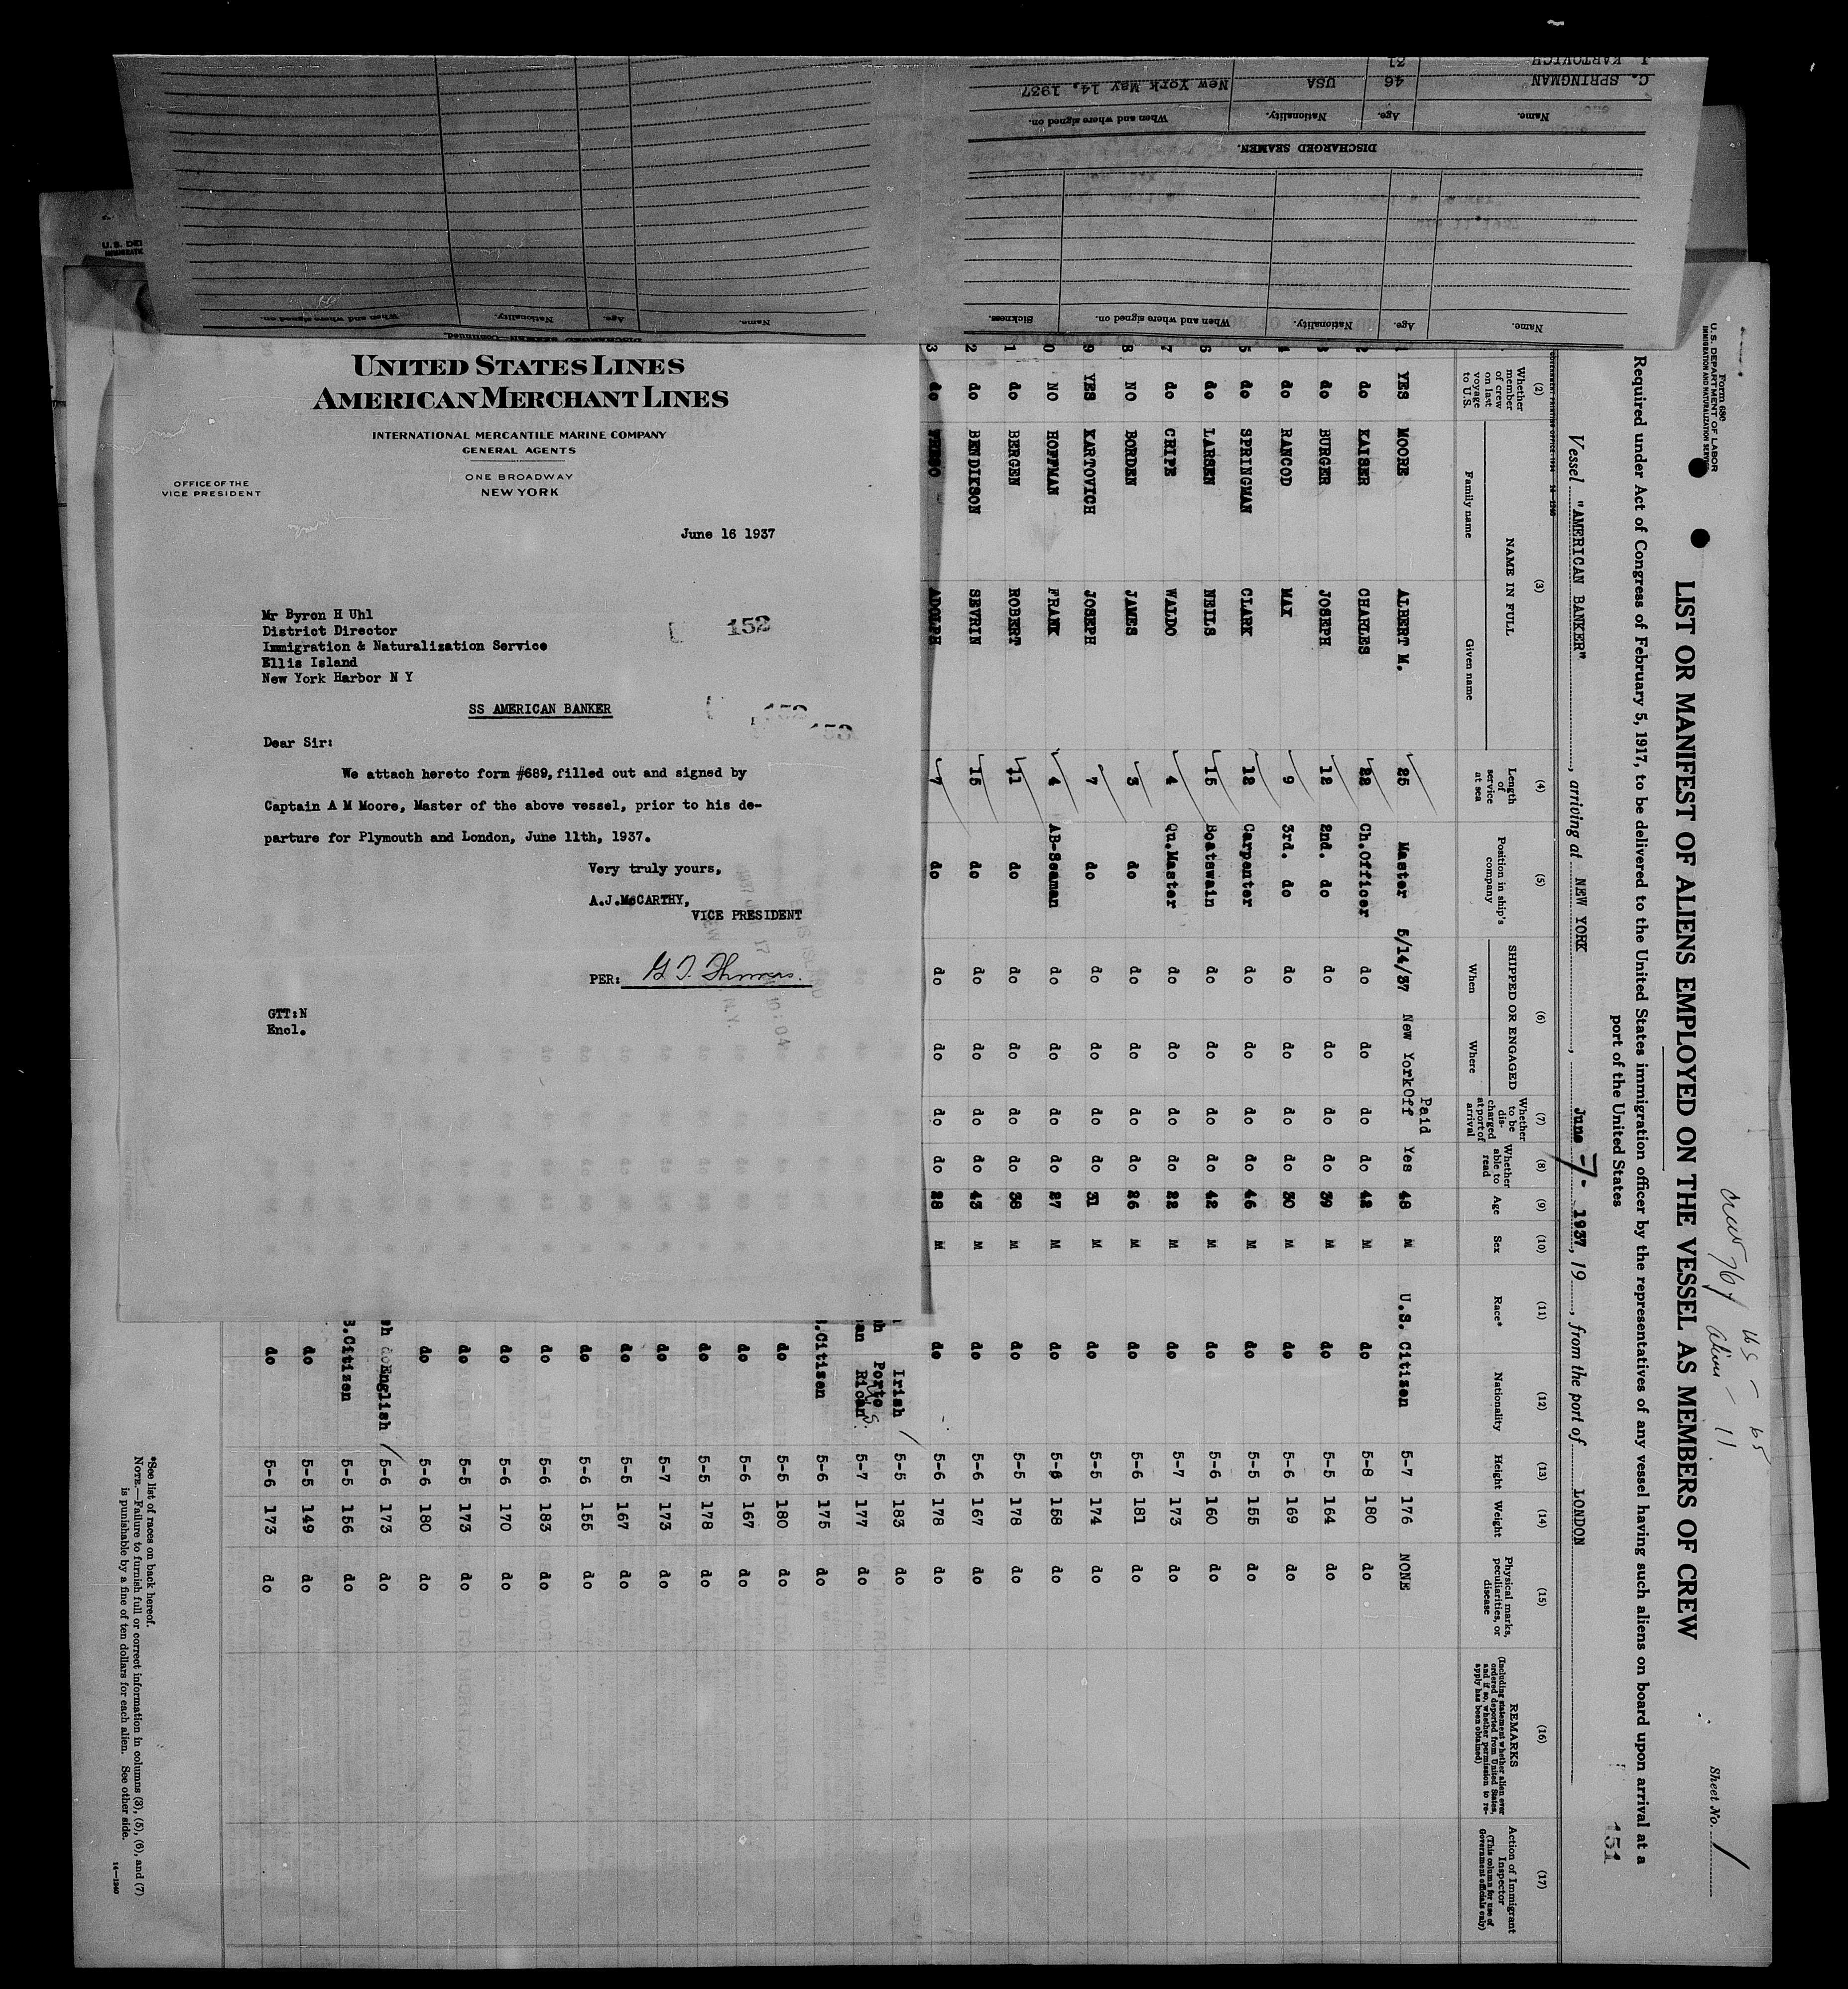 C. SPRINGMAN 46 USA New York May 14, 1937
KARTOVICH 31
Name. Age. Nationality. When and where signed on.
DISCHARGED SEAMEN.
Name. Age. Nationality. When and where signed on. Sickness.
DISCHARGED SEAMEN—Continued.
Name. Age. Nationality. When and where signed on.
UNITED STATES LINES
AMERICAN MERCHANT LINES
INTERNATIONAL MERCANTILE MARINE COMPANY
GENERAL AGENTS
ONE BROADWAY
NEW YORK
OFFICE OF THE
VICE PRESIDENT
June 16 1937
Mr Byron H Uhl
District Director
Immigration & Naturalization Service
Ellis Island
New York Harbor N Y
152
SS AMERICAN BANKER
152
153
Dear Sir:
We attach hereto form #689, filled out and signed by
Captain A M Moore, Master of the above vessel, prior to his de-
parture for Plymouth and London, June 11th, 1937.
Very truly yours,
A.J.McCARTHY,
VICE PRESIDENT
PER:
GTT:N
Encl.
Form 680
U. S. DEPARTMENT OF LABOR
IMMIGRATION AND NATURALIZATION SERVICE
Sheet No. 1
Crew 76 / US - 65
Alien - 11.
LIST OR MANIFEST OF ALIENS EMPLOYED ON THE VESSEL AS MEMBERS OF CREW
Required under Act of Congress of February 5, 1917, to be delivered to the United States immigration officer by the representatives of any vessel having such aliens on board upon arrival at a
port of the United States
151
Vessel "AMERICAN BANKER", arriving at NEW YORK, June 7- 1937, 19, from the port of LONDON
(2) (3) (4) (5) (6) (7) (8) (9) (10) (11) (12) (13) (14) (15) (16) (17)
Whether member of crew on last voyage to U.S.
NAME IN FULL
Family name Given name
Length of service at sea
Position in ship's company
SHIPPED OR ENGAGED
When Where
Whether to be discharged at port of arrival
Whether able to read
Age
Sex
Race*
Nationality
Height
Weight
Physical marks, peculiarities, or disease
REMARKS
(Including statement whether alien ever ordered deported from United States, and if so, whether permission to reapply has been obtained)
Action of Immigrant Inspector
(This column for use of Government officials only)
1 YES MOORE ALBERT M. 25 Master 5/14/37 New York Paid Off Yes 48 M U.S. Citizen 5-7 176 NONE
2 do KAISER CHARLES 22 Ch.Officer do do do do 42 M do 5-8 180 do
3 do BURGER JOSEPH 12 2nd. do do do do do 39 M do 5-5 164 do
4 do RANCOD MAX 9 3rd. do do do do do 30 M do 5-6 169 do
5 do SPRINGMAN CLARK 12 Carpenter do do do do 46 M do 5-5 155 do
6 do LARSEN NEILS 15 Boatswain do do do do 42 M do 5-6 160 do
7 do CRIPE WALDO 4 Qu.Master do do do do 22 M do 5-7 173 do
8 NO BORDEN JAMES 3 do do do do do 26 M do 5-6 181 do
9 YES KARTOVICH JOSEPH 7 do do do do do 31 M do 5-5 174 do
0 NO HOFFMAN FRANK 4 AB-Seaman do do do do 27 M do 5-6 158 do
1 do BERGEN ROBERT 11 do do do do do 38 M do 5-5 178 do
2 do BENDIKSON SEVRIN 15 do do do do do 43 M do 5-6 167 do
3 do ADOLPH 7 do do do do do 28 M do 5-6 178 do
Irish 5-5 183 do
Porto Rican 5-7 177 do
S.Citizen 5-6 175 do
do 5-5 180 do
do 5-6 167 do
do 5-5 178 do
do 5-7 173 do
do 5-5 167 do
do 5-6 155 do
do 5-6 183 do
do 5-6 170 do
do 5-5 173 do
do 5-6 180 do
English 5-6 173 do
S.Citizen 5-5 156 do
do 5-5 149 do
do 5-6 173 do
*See list of races on back hereof.
NOTE.—Failure to furnish full or correct information in columns (3), (5), (6), and (7)
is punishable by a fine of ten dollars for each alien. See other side.
14—1240